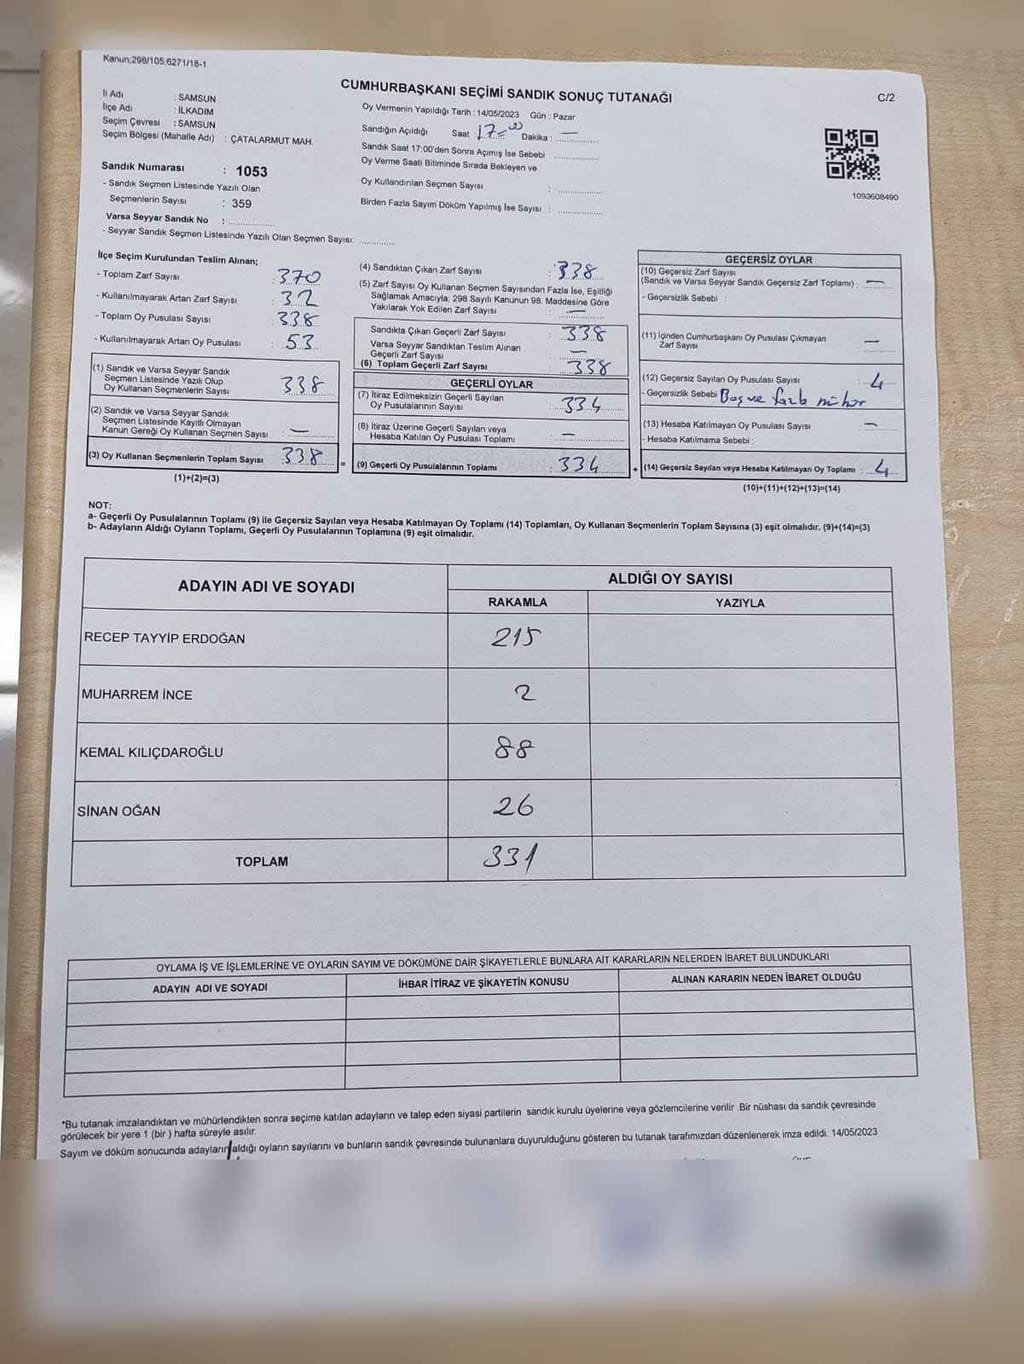 Kanun;298/105;6271/18-1
CUMHURBAŞKANI SEÇİMİ SANDIK SONUÇ TUTANAĞI
C/2
İl Adı : SAMSUN
İlçe Adı : İLKADIM
Seçim Çevresi : SAMSUN
Seçim Bölgesi (Mahalle Adı) : ÇATALARMUT MAH.
Sandık Numarası : 1053
- Sandık Seçmen Listesinde Yazılı Olan
Seçmenlerin Sayısı : 359
Varsa Seyyar Sandık No :
- Seyyar Sandık Seçmen Listesinde Yazılı Olan Seçmen Sayısı:
Oy Vermenin Yapıldığı Tarih : 14/05/2023 Gün : Pazar
Sandığın Açıldığı Saat 17=00 Dakika : —
Sandık Saat 17:00'den Sonra Açımış İse Sebebi
Oy Verme Saati Bitiminde Sırada Bekleyen ve
Oy Kullandırılan Seçmen Sayısı :
Birden Fazla Sayım Döküm Yapılmış İse Sayısı :
1093608490
İlçe Seçim Kurulundan Teslim Alınan;
- Toplam Zarf Sayısı : 370
- Kullanılmayarak Artan Zarf Sayısı : 32
- Toplam Oy Pusulası Sayısı : 338
- Kullanılmayarak Artan Oy Pusulası : 53
(1) Sandık ve Varsa Seyyar Sandık
Seçmen Listesinde Yazılı Olup
Oy Kullanan Seçmenlerin Sayısı : 338
(2) Sandık ve Varsa Seyyar Sandık
Seçmen Listesinde Kayıtlı Olmayan
Kanun Gereği Oy Kullanan Seçmen Sayısı : —
(3) Oy Kullanan Seçmenlerin Toplam Sayısı 338
(1)+(2)=(3)
(4) Sandıktan Çıkan Zarf Sayısı : 338
(5) Zarf Sayısı Oy Kullanan Seçmen Sayısından Fazla İse, Eşitliği
Sağlamak Amacıyla; 298 Sayılı Kanunun 98. Maddesine Göre
Yakılarak Yok Edilen Zarf Sayısı : —
Sandıkta Çıkan Geçerli Zarf Sayısı : 338
Varsa Seyyar Sandıktan Teslim Alınan
Geçerli Zarf Sayısı : —
(6) Toplam Geçerli Zarf Sayısı : 338
GEÇERLİ OYLAR
(7) İtiraz Edilmeksizin Geçerli Sayılan
Oy Pusulalarının Sayısı : 334
(8) İtiraz Üzerine Geçerli Sayılan veya
Hesaba Katılan Oy Pusulası Toplamı : —
= (9) Geçerli Oy Pusulalarının Toplamı : 334
GEÇERSİZ OYLAR
(10) Geçersiz Zarf Sayısı
(Sandık ve Varsa Seyyar Sandık Geçersiz Zarf Toplamı) : —
- Geçersizlik Sebebi :
(11) İçinden Cumhurbaşkanı Oy Pusulası Çıkmayan
Zarf Sayısı : —
(12) Geçersiz Sayılan Oy Pusulası Sayısı : 4
- Geçersizlik Sebebi Boş ve fazla mühür
(13) Hesaba Katılmayan Oy Pusulası Sayısı : —
- Hesaba Katılmama Sebebi :
+ (14) Geçersiz Sayılan veya Hesaba Katılmayan Oy Toplamı : 4
(10)+(11)+(12)+(13)=(14)
NOT:
a- Geçerli Oy Pusulalarının Toplamı (9) ile Geçersiz Sayılan veya Hesaba Katılmayan Oy Toplamı (14) Toplamları, Oy Kullanan Seçmenlerin Toplam Sayısına (3) eşit olmalıdır. (9)+(14)=(3)
b- Adayların Aldığı Oyların Toplamı, Geçerli Oy Pusulalarının Toplamına (9) eşit olmalıdır.
ADAYIN ADI VE SOYADI
ALDIĞI OY SAYISI
RAKAMLA YAZIYLA
RECEP TAYYİP ERDOĞAN 215
MUHARREM İNCE 2
KEMAL KILIÇDAROĞLU 88
SİNAN OĞAN 26
TOPLAM 331
OYLAMA İŞ VE İŞLEMLERİNE VE OYLARIN SAYIM VE DÖKÜMÜNE DAİR ŞİKAYETLERLE BUNLARA AİT KARARLARIN NELERDEN İBARET BULUNDUKLARI
ADAYIN ADI VE SOYADI İHBAR İTİRAZ VE ŞİKAYETİN KONUSU ALINAN KARARIN NEDEN İBARET OLDUĞU
*Bu tutanak imzalandıktan ve mühürlendikten sonra seçime katılan adayların ve talep eden siyasi partilerin sandık kurulu üyelerine veya gözlemcilerine verilir Bir nüshası da sandık çevresinde
görülecek bir yere 1 (bir ) hafta süreyle asılır.
Sayım ve döküm sonucunda adayların aldığı oyların sayılarını ve bunların sandık çevresinde bulunanlara duyurulduğunu gösteren bu tutanak tarafımızdan düzenlenerek imza edildi. 14/05/2023